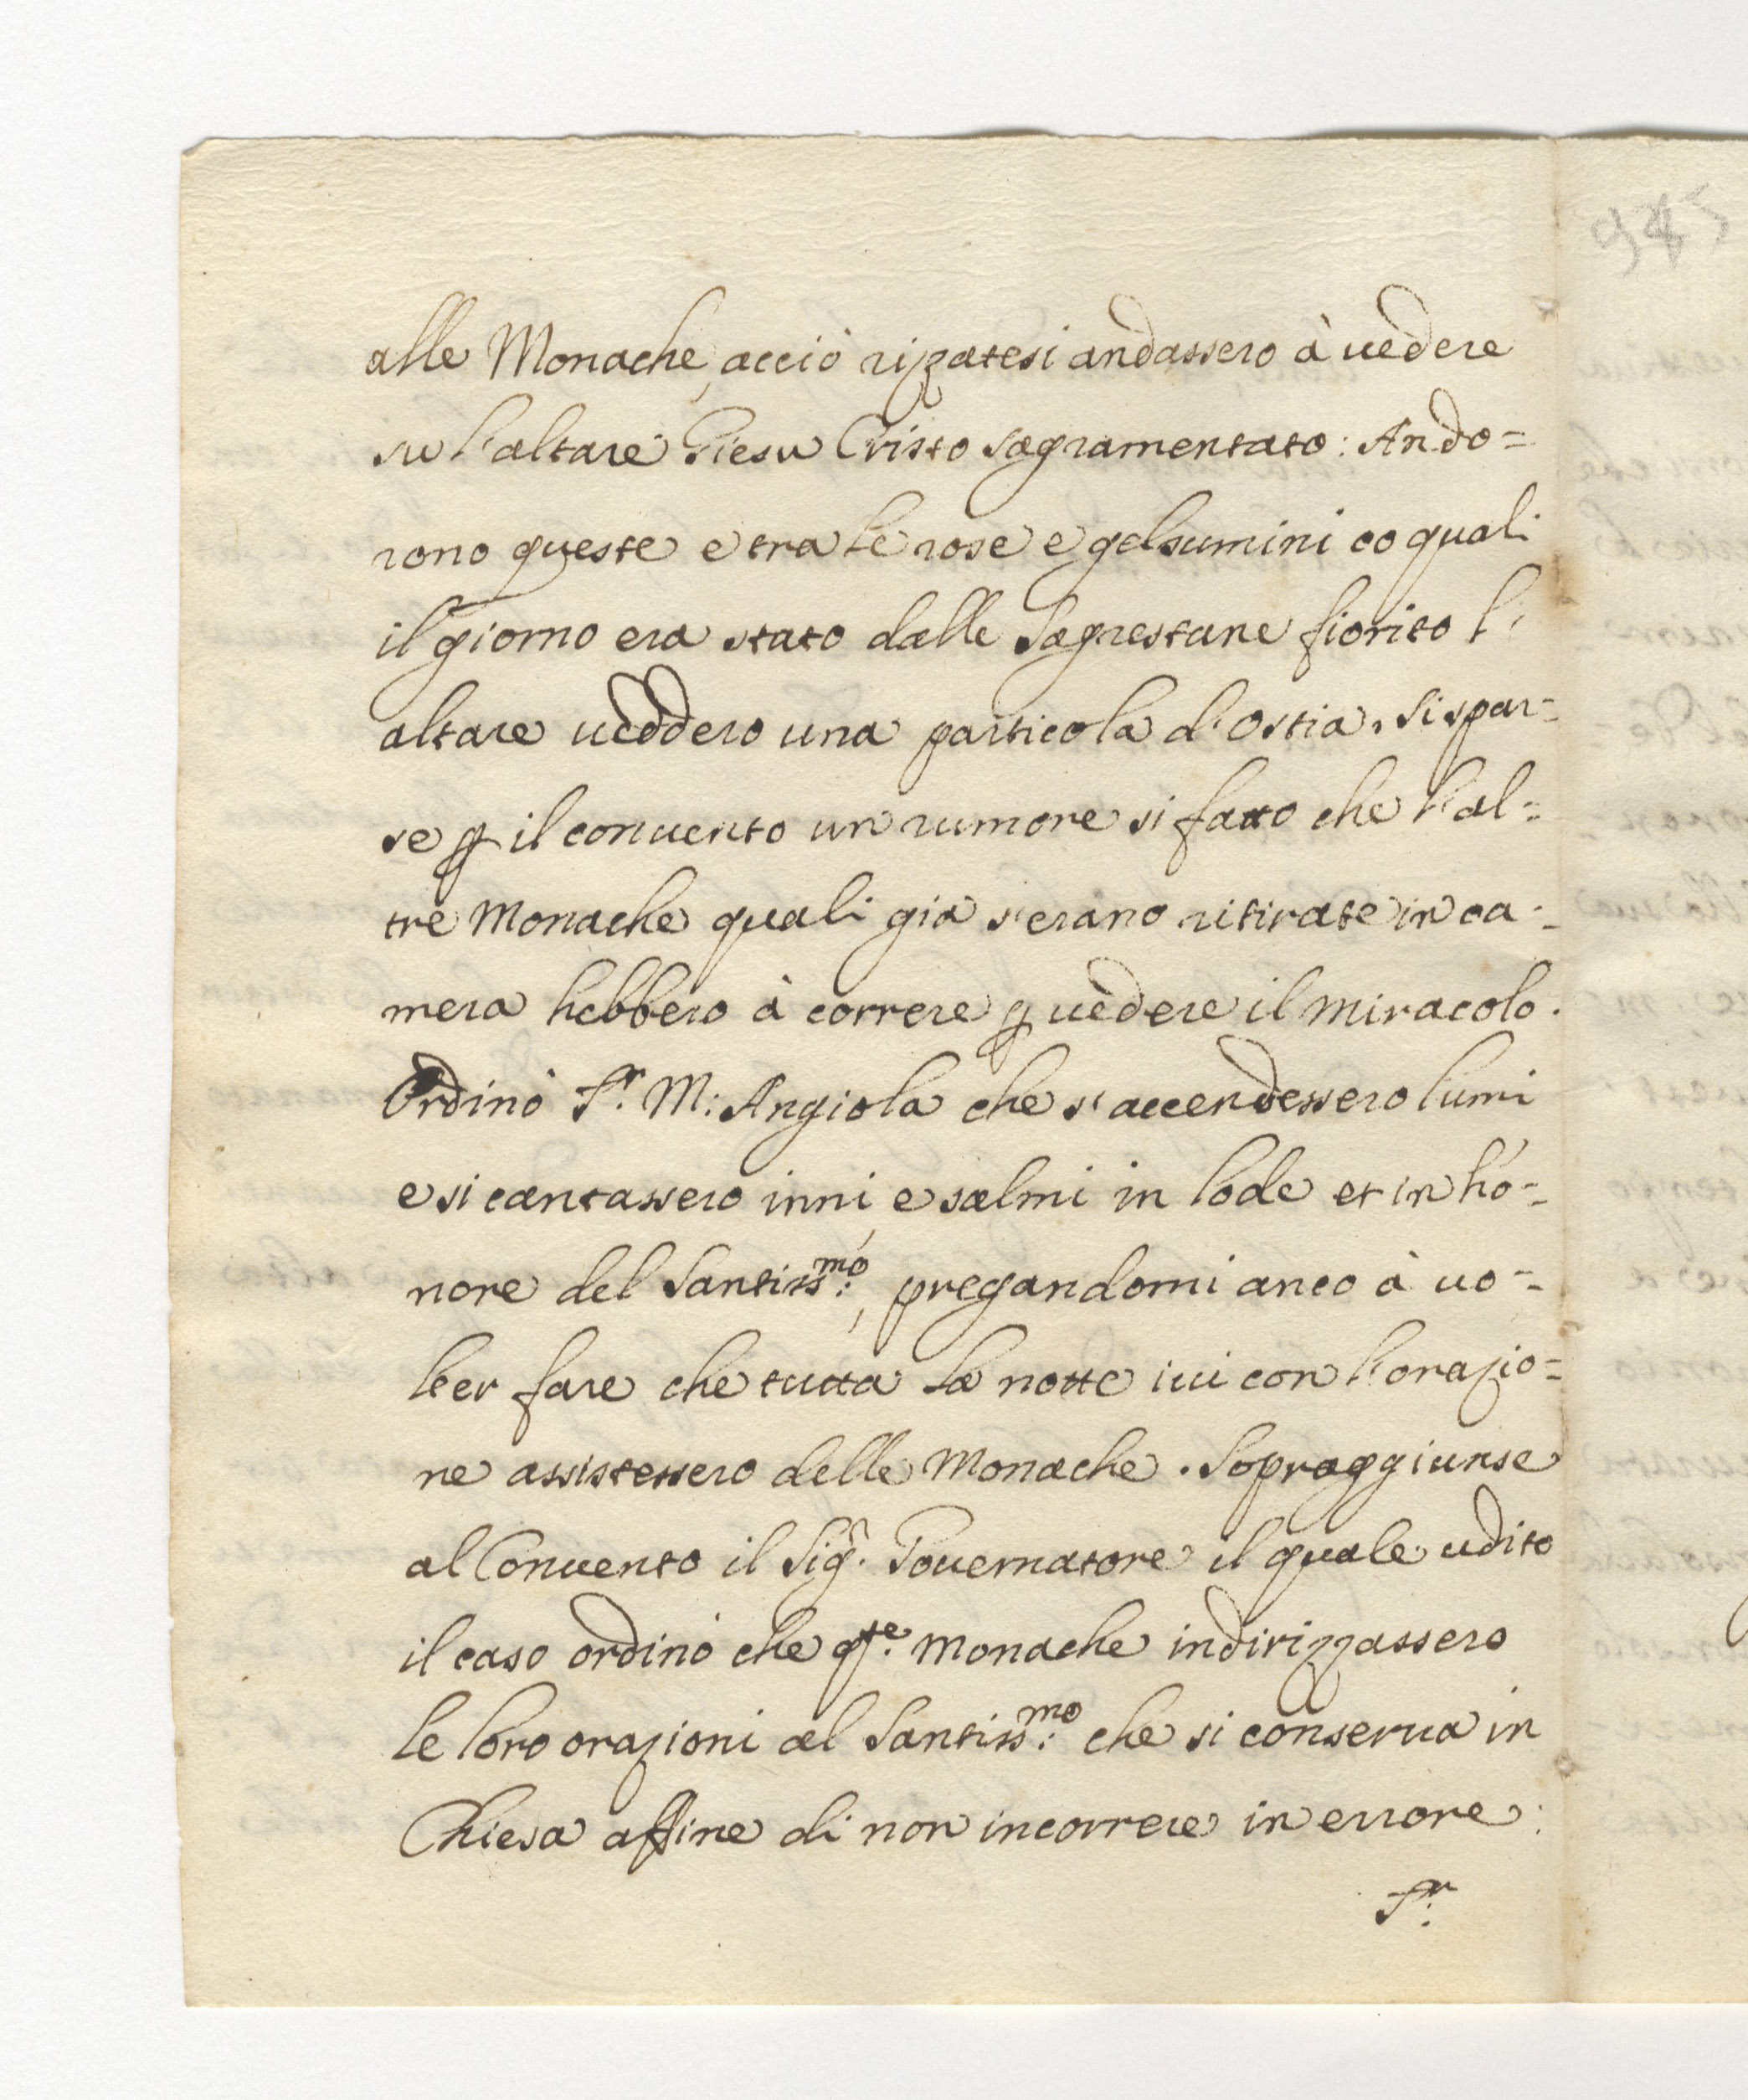 945
alle Monache, acciò rizatesi andassero à uedere
su l'altare Giesu Cristo sagramentato: Ando=
rono queste e tra le rose e gelsumini co quali
il giorno era stato dalle Sagrestane fiorito l'
altare ueddero una particola d'Ostia. Si spar=
se ꝑ il conuento un rumore si fatto che l'al=
tre Monache quali già s'erano ritirate in ca=
mera hebbero à correre ꝑ uedere il miracolo.
Ordinò Sr. M: Angiola che s'accendessero lumi
e si cantassero inni, e salmi in lode et in ho=
nore del Santiss:mo, pregandomi anco à uo=
ler fare che tutta la notte iui con l'orazio=
ne assistessero delle Monache. Sopraggiunse
al Conuento il Sigr. Gouernatore il quale udito
il caso ordinò che qste. Monache indirizzassero
le loro orazioni al Santiss:mo che si conserua in
Chiesa affine di non incorrere in errore:
Sr: